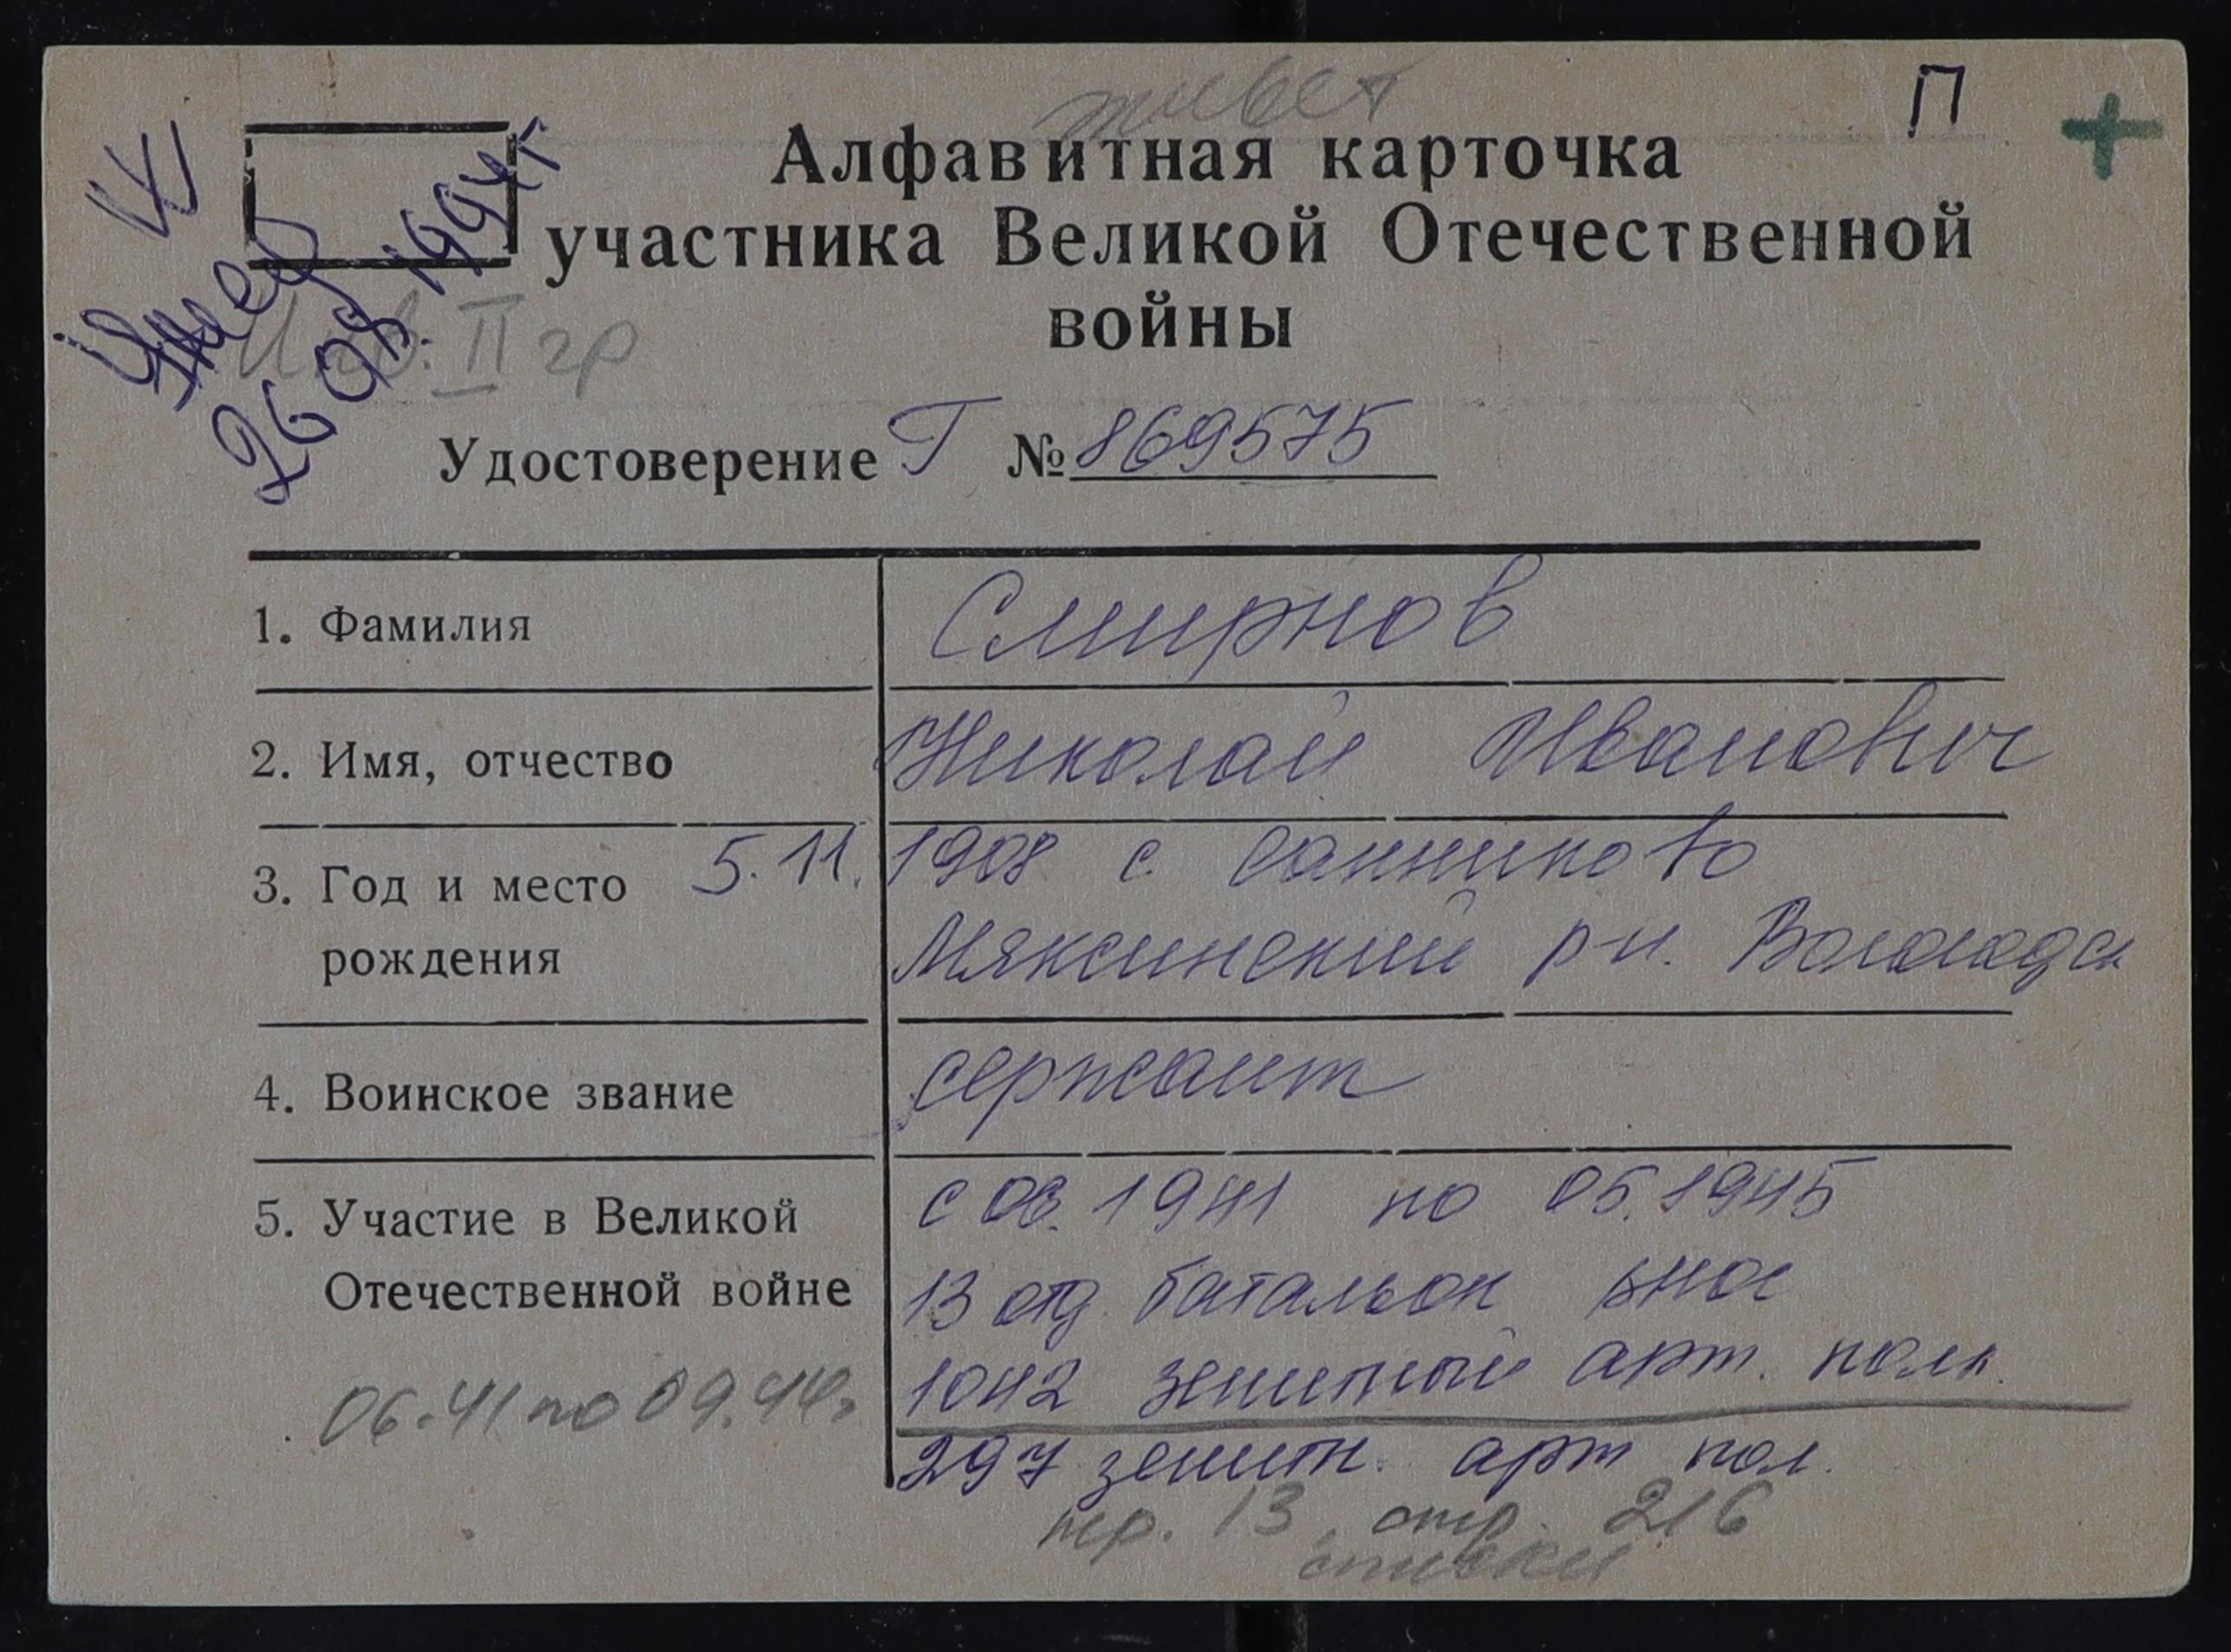 П
+
Алфавитная карточка
участника Великой Отечественной
войны
Умер
26 08 1994 г
Инв. II гр
Удостоверение Г № 869575
1. Фамилия Смирнов
2. Имя, отчество Николай Иванович
3. Год и место 5.11. 1908 с. Санниково
рождения Мяксинский р-н. Вологодск
4. Воинское звание сержант
5. Участие в Великой с 06.1941 по 05.1945
Отечественной войне 13 отд. батальон внос
1042 зенитный арт. полк.
06.41 по 09.44г.
297 зенитн. арт пол.
пер. 13, стр. 216